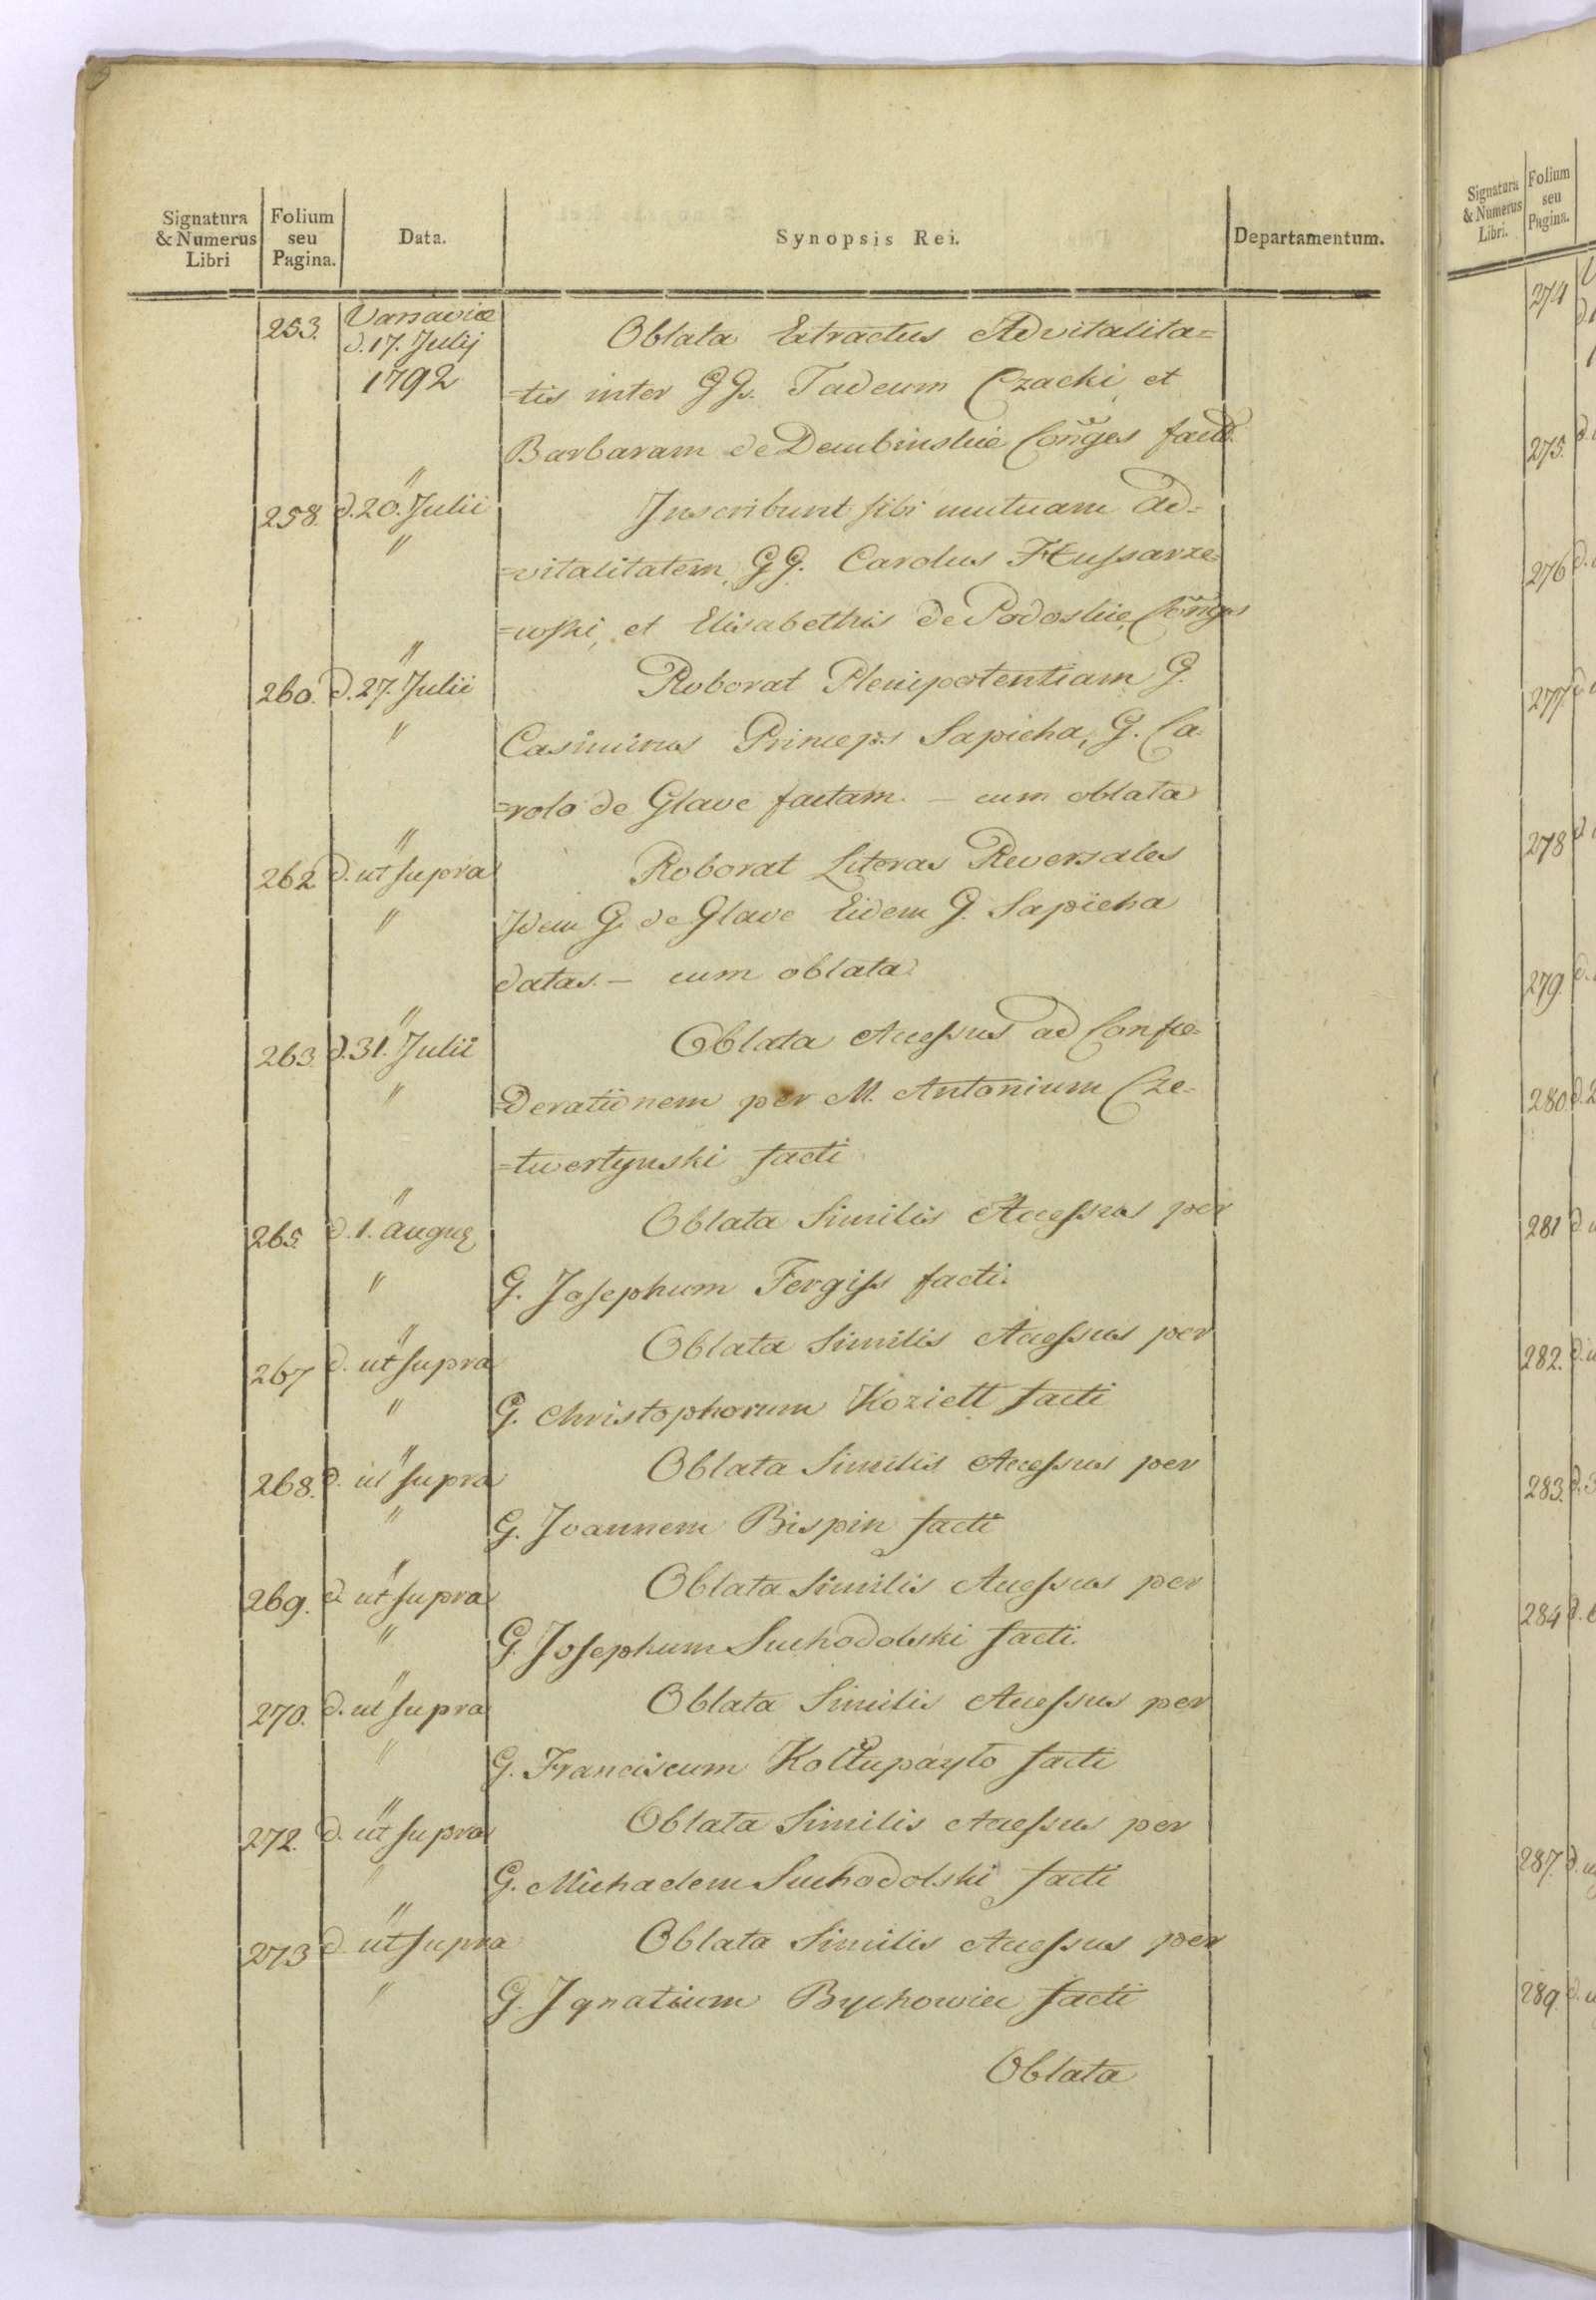 Signatura & Numerus Libri | Folium seu Pagina. | Data. | Synopsis Rei. | Departamentum.
253. Varsaviæ Oblata Extractus Advitalita=
d. 17. Julij 1792 =tis inter GGs. Tadeum Czacki, et
Barbaram de Dembinskie Conges factæ
258. d. 20. Julii Inscribunt sibi mutuam ad=
=vitalitatem, GG. Carolus Hussarze=
=wski, et Elisabethis de Podoskie, Conges
260. d. 27. Julii Roborat Plenipotentiam G.
Casimirus Princeps Sapieha, G. Ca=
=rolo de Glave factam. — cum oblata
262. d. ut supra Roborat Literas Reversales
Idem G. de Glave Eidem G. Sapieha
datas. — cum oblata
263. d. 31. Julii Oblata Accessus ad Confæ=
=derationem per M. Antonium Cze=
=twertynski facti
265. d. 1. Aug Oblata Similis Accessus per
G. Josephum Fergiss facti.
267 d. ut supra Oblata Similis Accessus per
G. Christophorum Koziell facti
268. d. ut supra Oblata Similis Accessus per
G. Joannem Bispin facti
269. d. ut supra Oblata Similis Accessus per
G. Josephum Suchodolski facti.
270. d. ut supra Oblata Similis Accessus per
G. Franciscum Kołłupayło facti
272. d. ut supra Oblata Similis Accessus per
G. Michaelem Suchodolski facti
273 d. ut supra Oblata Similis Accessus per
G. Ignatium Bychowiec facti
Oblata
Signatura & Numerus Libri. | Folium seu Pagina.
274
275.
276
277.
278
279.
280.
281
282.
283.
284
287.
289.